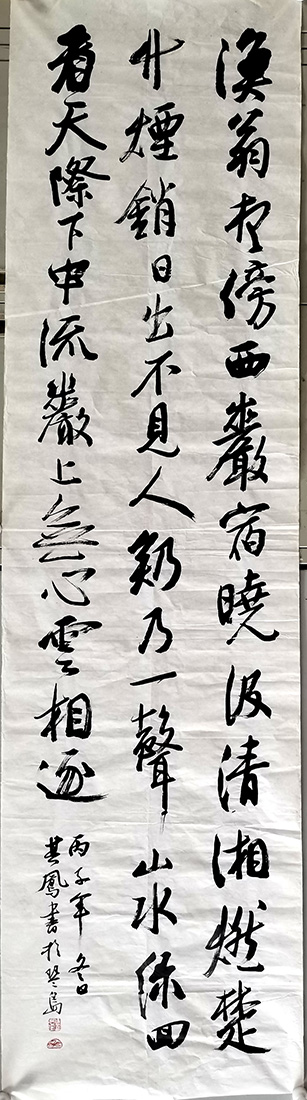 漁翁夜傍西巖宿曉汲清湘燃楚
竹煙銷日出不見人欸乃一聲山水綠回
看天際下中流巖上無心雲相逐
丙子年冬日
其鳳書於琴島